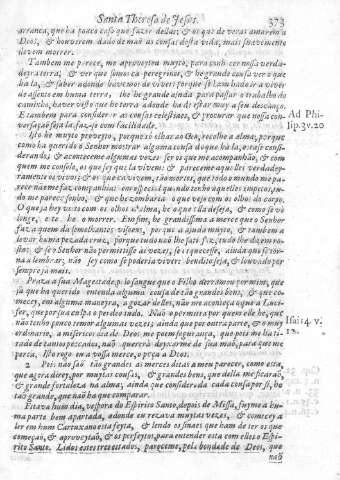 Santa Theresa de Jesus. 373
arranca, que ha pouco caso que fazer della; & os que de veras amarem a
Deos, & houverem dado de mão as cousas desta vida, mais suavemente
devem morrer.
Tambem me parece, me aproveytou muyto, para conhecer nossa verda-
deyra terra, & ver que somos cà peregrinos, & he grande cousa ver o que
ha là, & saber adonde havemos de viver; porque se hum ha de ir a viver
de assento em huma terra, lhe he grande ajuda para passar o trabalho do
caminho, haver visto que he terra adonde ha de estar muy a seu descanço.
E tambem para considerar as cousas celestiaes, & procurar que nossa con-
versação seja là, faz-se com facilidade.
Ad Phi-
lip. 3. v. 20
Isto he muyto proveyto, porque só olhar ao Ceo, recolhe a alma; porque
como ha querido o Senhor mostrar alguma cousa do que ha là, está se consi-
derando; & aconteceme algumas vezes ser os que me acompanhão, & com
quem me consolo, os que sey que là vivem: & pareceme aquelles verdadey-
ramente os vivos; & os que cà vivem, tão mortos, que todo o mundo me pa-
rece não me faz companhia: em especial quando tenho aquelles impetos, tu-
do me parece sonho, & que he zombaria o que vejo com os olhos do corpo.
O que ja hey visto com os olhos da alma, he o que ella deseja, & como se vê
longe, este he o morrer. Em fim, he grandissima a merce que o Senhor
faz, a quem dà semelhantes visoens, porque a ajuda muyto, & tambem a
levar huma pezada cruz, porque tudo não lhe satisfaz, tudo lhe dá em ros-
to: & se o Senhor não permittisse às vezes, se esquecesse, ainda que se tor-
na a lembrar, não sey como se poderia viver: bendito seja, & louvado por
sempre ja mais.
Praza a sua Magestade, pelo sangue que o Filho derramou por mim, que
jà que ha querido entenda alguma cousa de tão grandes bens, & que co-
mecey, em alguma maneyra, a gozar delles, não me aconteça o que a Luci-
fer, que por sua culpa o perdeo tudo. Não o permitta por quem elle he, que
não tenho pouco temor algumas vezes; ainda que por outra parte, & o muy
ordinario, a misericordia de Deos me poem segurança, que pois me ha ti-
rado de tantos peccados, não quererà deyxarme de sua mão, para que me
perca. Isto rogo eu a vossa merce, o peça a Deos.
Isai. 14. v.
12.
2 Pois não são tão grandes as merces ditas a meu parecer, como esta,
que agora direy, por muytas cousas, & grandes bens, que della me ficarão,
& grande fortaleza na alma; ainda que considerada cada cousa por si, he
tão grande, que não ha que comparar.
Estava hum dia, vespora do Espirito Santo, depois de Missa, fuyme a hu-
ma parte bem apartada, adonde eu rezava muytas vezes, & comecey a
ler em hum Cartuxano esta festa, & lendo os sinaes que ham de ter os que
começão, & aproveytão, & os perfeytos, para entender está com elles o Espi-
rito Santo. Lidos estes tres estados, pareceme, pela bondade de Deos, que
não